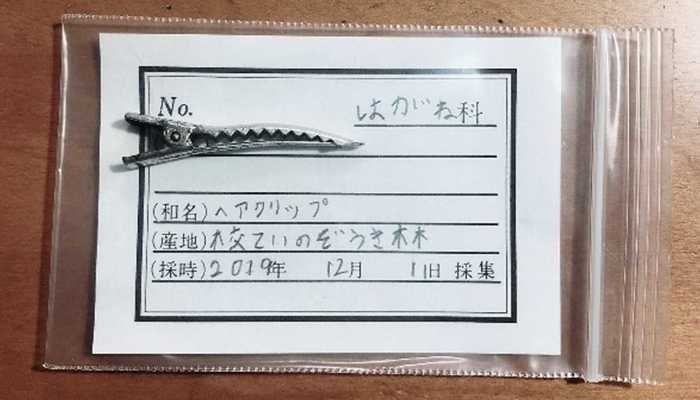 No.
はがね科
(和名)ヘアクリップ
(産地)校ていのぞうき林
(採時)2019年 12月 11日 採集